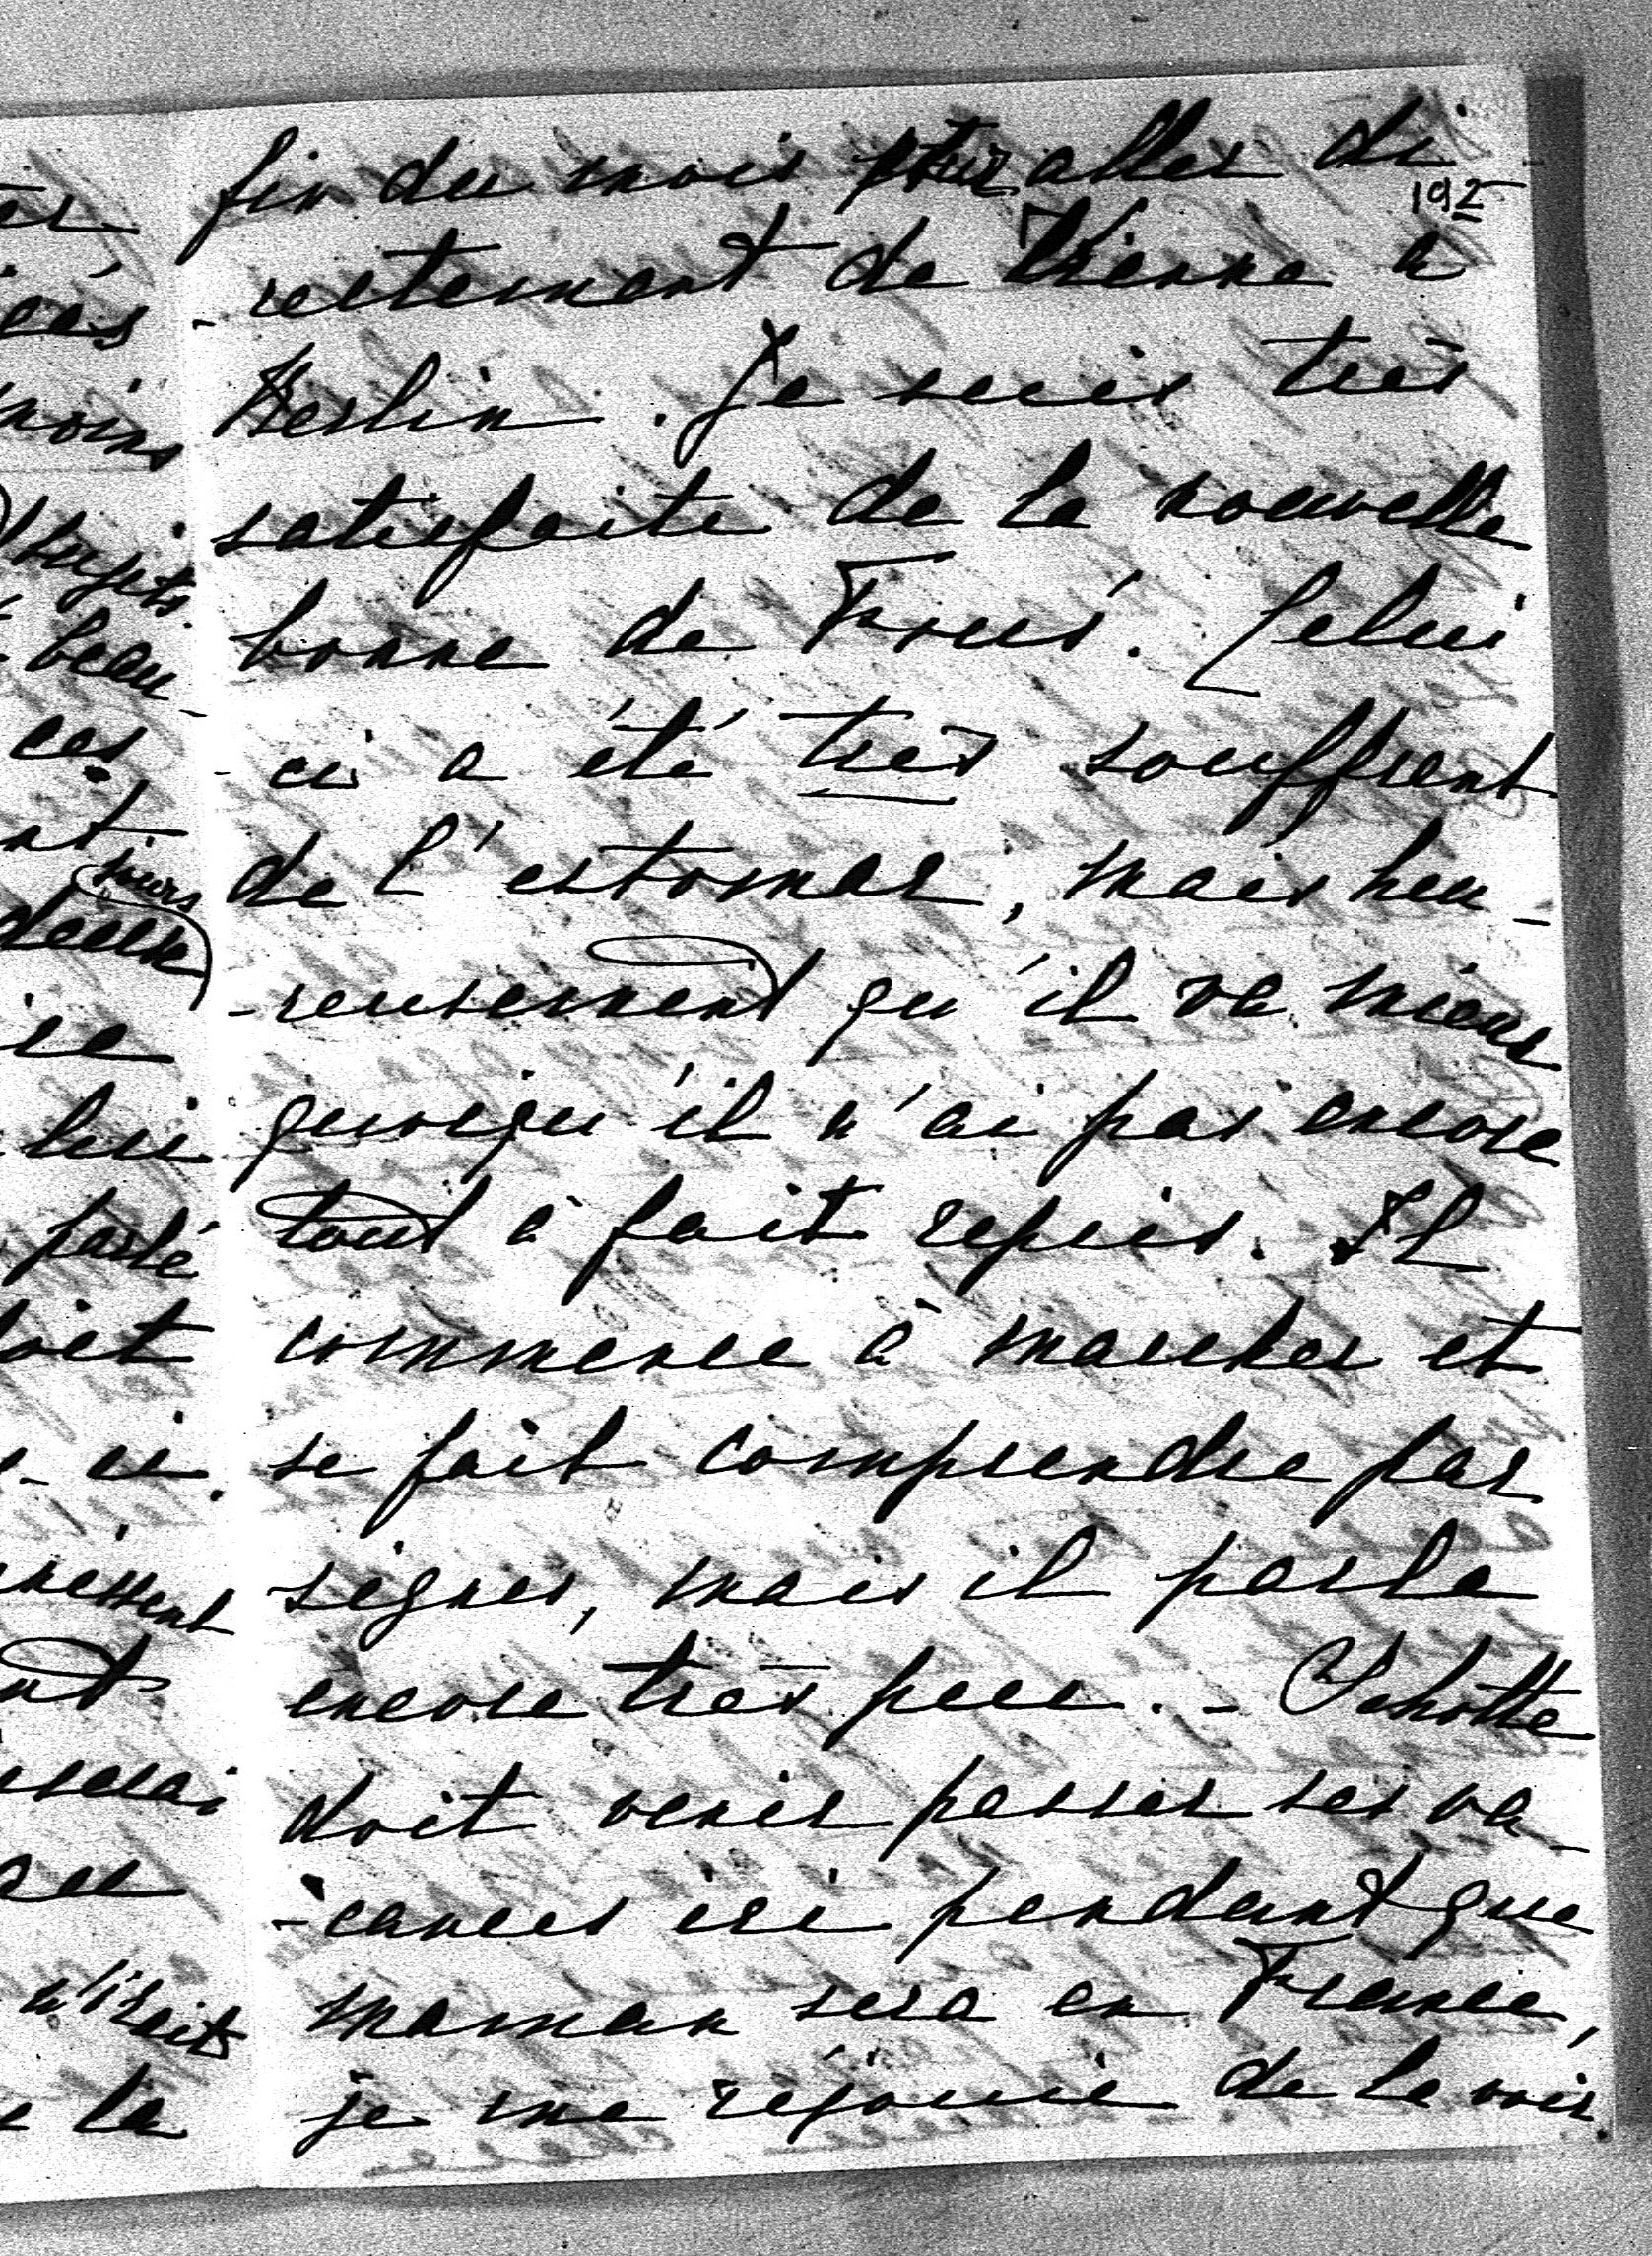 fin du mois pour aller di-
192
-rectement de Vienne a
Berlin. Je suis très
satisfaite de la nouvelle
bonne de Frous. Celui
-ci a été très souffrent
de l'estomac, mais heu-
-reusement qu'il va mieux
quoiqu'il n'ai pas encore
tout à fait repris. Il
commence à marcher et
se fait comprendre par
signes, mais il parle
encore très peu. - Schotte
doit venir passer ses va-
-cances ici pendant que
maman sera en France,
je me réjouie de la voir.
moins
sujets
beau-
ces
jours
deux
lui
parlé
n'irait
la